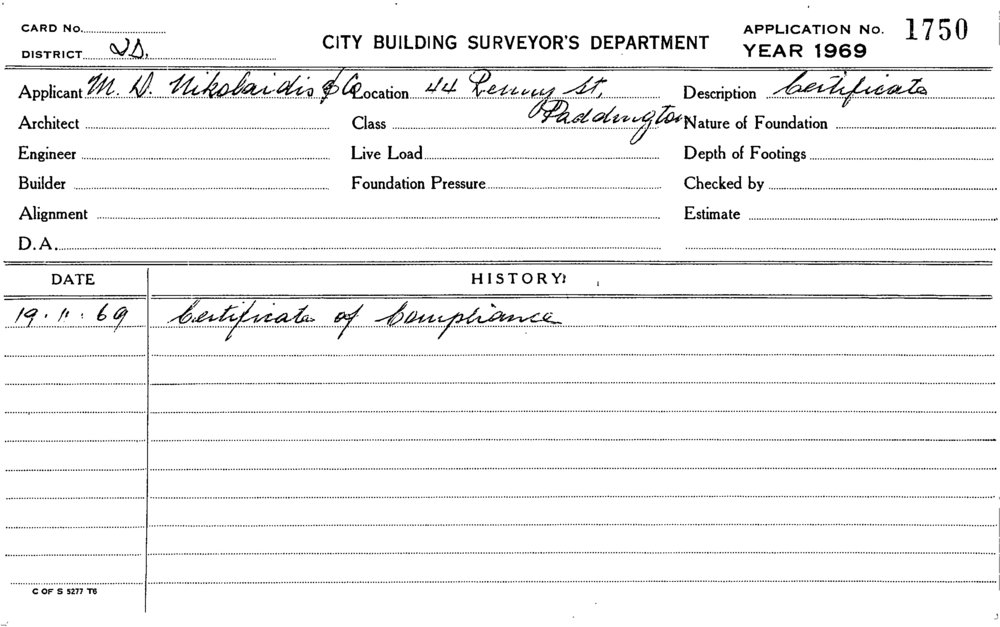 CARD No.
DISTRICT
CITY BUILDING SURVEYOR'S DEPARTMENT
APPLICATION No. 1750
YEAR 1969
Applicant M. D. Nikolaidis & Co Location 44 Renny St, Paddington Description Certificate
Architect Class Nature of Foundation
Engineer Live Load Depth of Footings
Builder Foundation Pressure Checked by
Alignment Estimate
D.A.
DATE HISTORY
19.11.69 Certificate of Compliance
C OF S 5277 T6